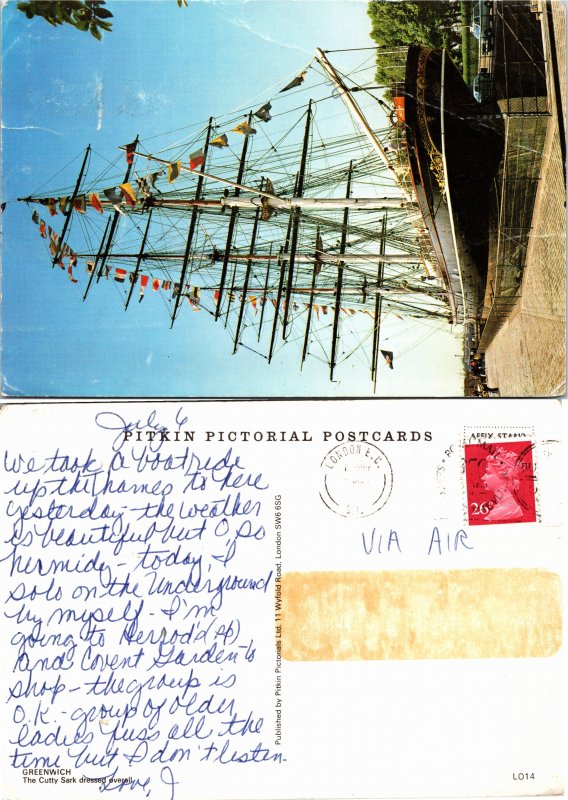 July 6
PITKIN PICTORIAL POSTCARDS
We took a boatride
up the Thames to here
yesterday - the weather
is beautiful but O, so
hermidy - today, I
solo on the Underground
by myself - I'm
going to Herrod's (sp)
and Covent Garden to
shop - the group is
O.K. - group of older
ladies fuss all the
time but I don't listen.
Love, J
GREENWICH
The Cutty Sark dressed overall
Published by Pitkin Pictorials Ltd. 11 Wyfold Road, London SW6 6SG
LONDON E.C.
AFFIX STAMP
26P
VIA AIR
LO14